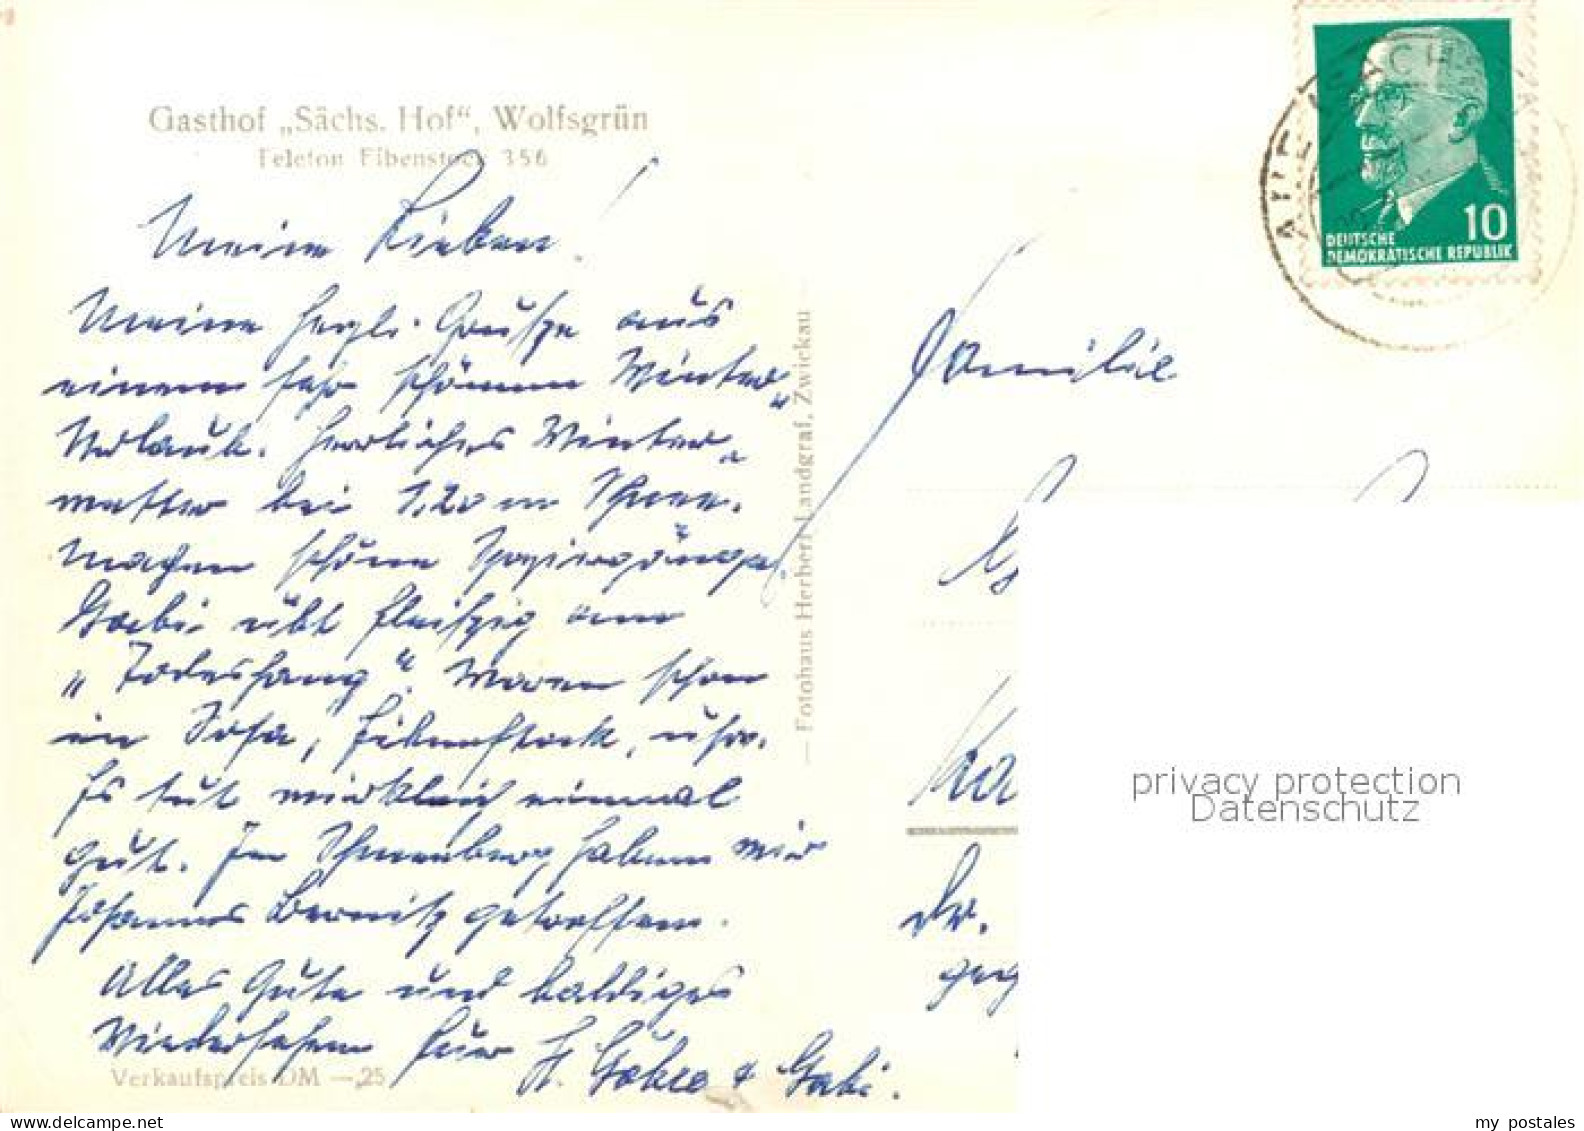 Gasthof „Sächs. Hof“, Wolfsgrün
Telefon Eibenstock 356
Meine Lieben!
Meine herzl. Grüße aus
einem sehr schönen Winter„
Urlaub. Herrliches Winter„
wetter bei 1,20 m Schnee.
Machen schöne Spaziergänge.
Gabi übt fleißig am
„Todeshang“. Waren schon
in Sosa, Eibenstock, usw.
Es tut wirklich einmal
gut. In Schneeberg haben wir
Johannes getroffen.
Alles Gute und baldiges
Wiedersehen Euer H. & Gabi.
Verkaufspreis DM —,25
— Fotohaus Herbert Landgraf, Zwickau
10
DEUTSCHE
DEMOKRATISCHE REPUBLIK
Familie
privacy protection
Datenschutz
my postales